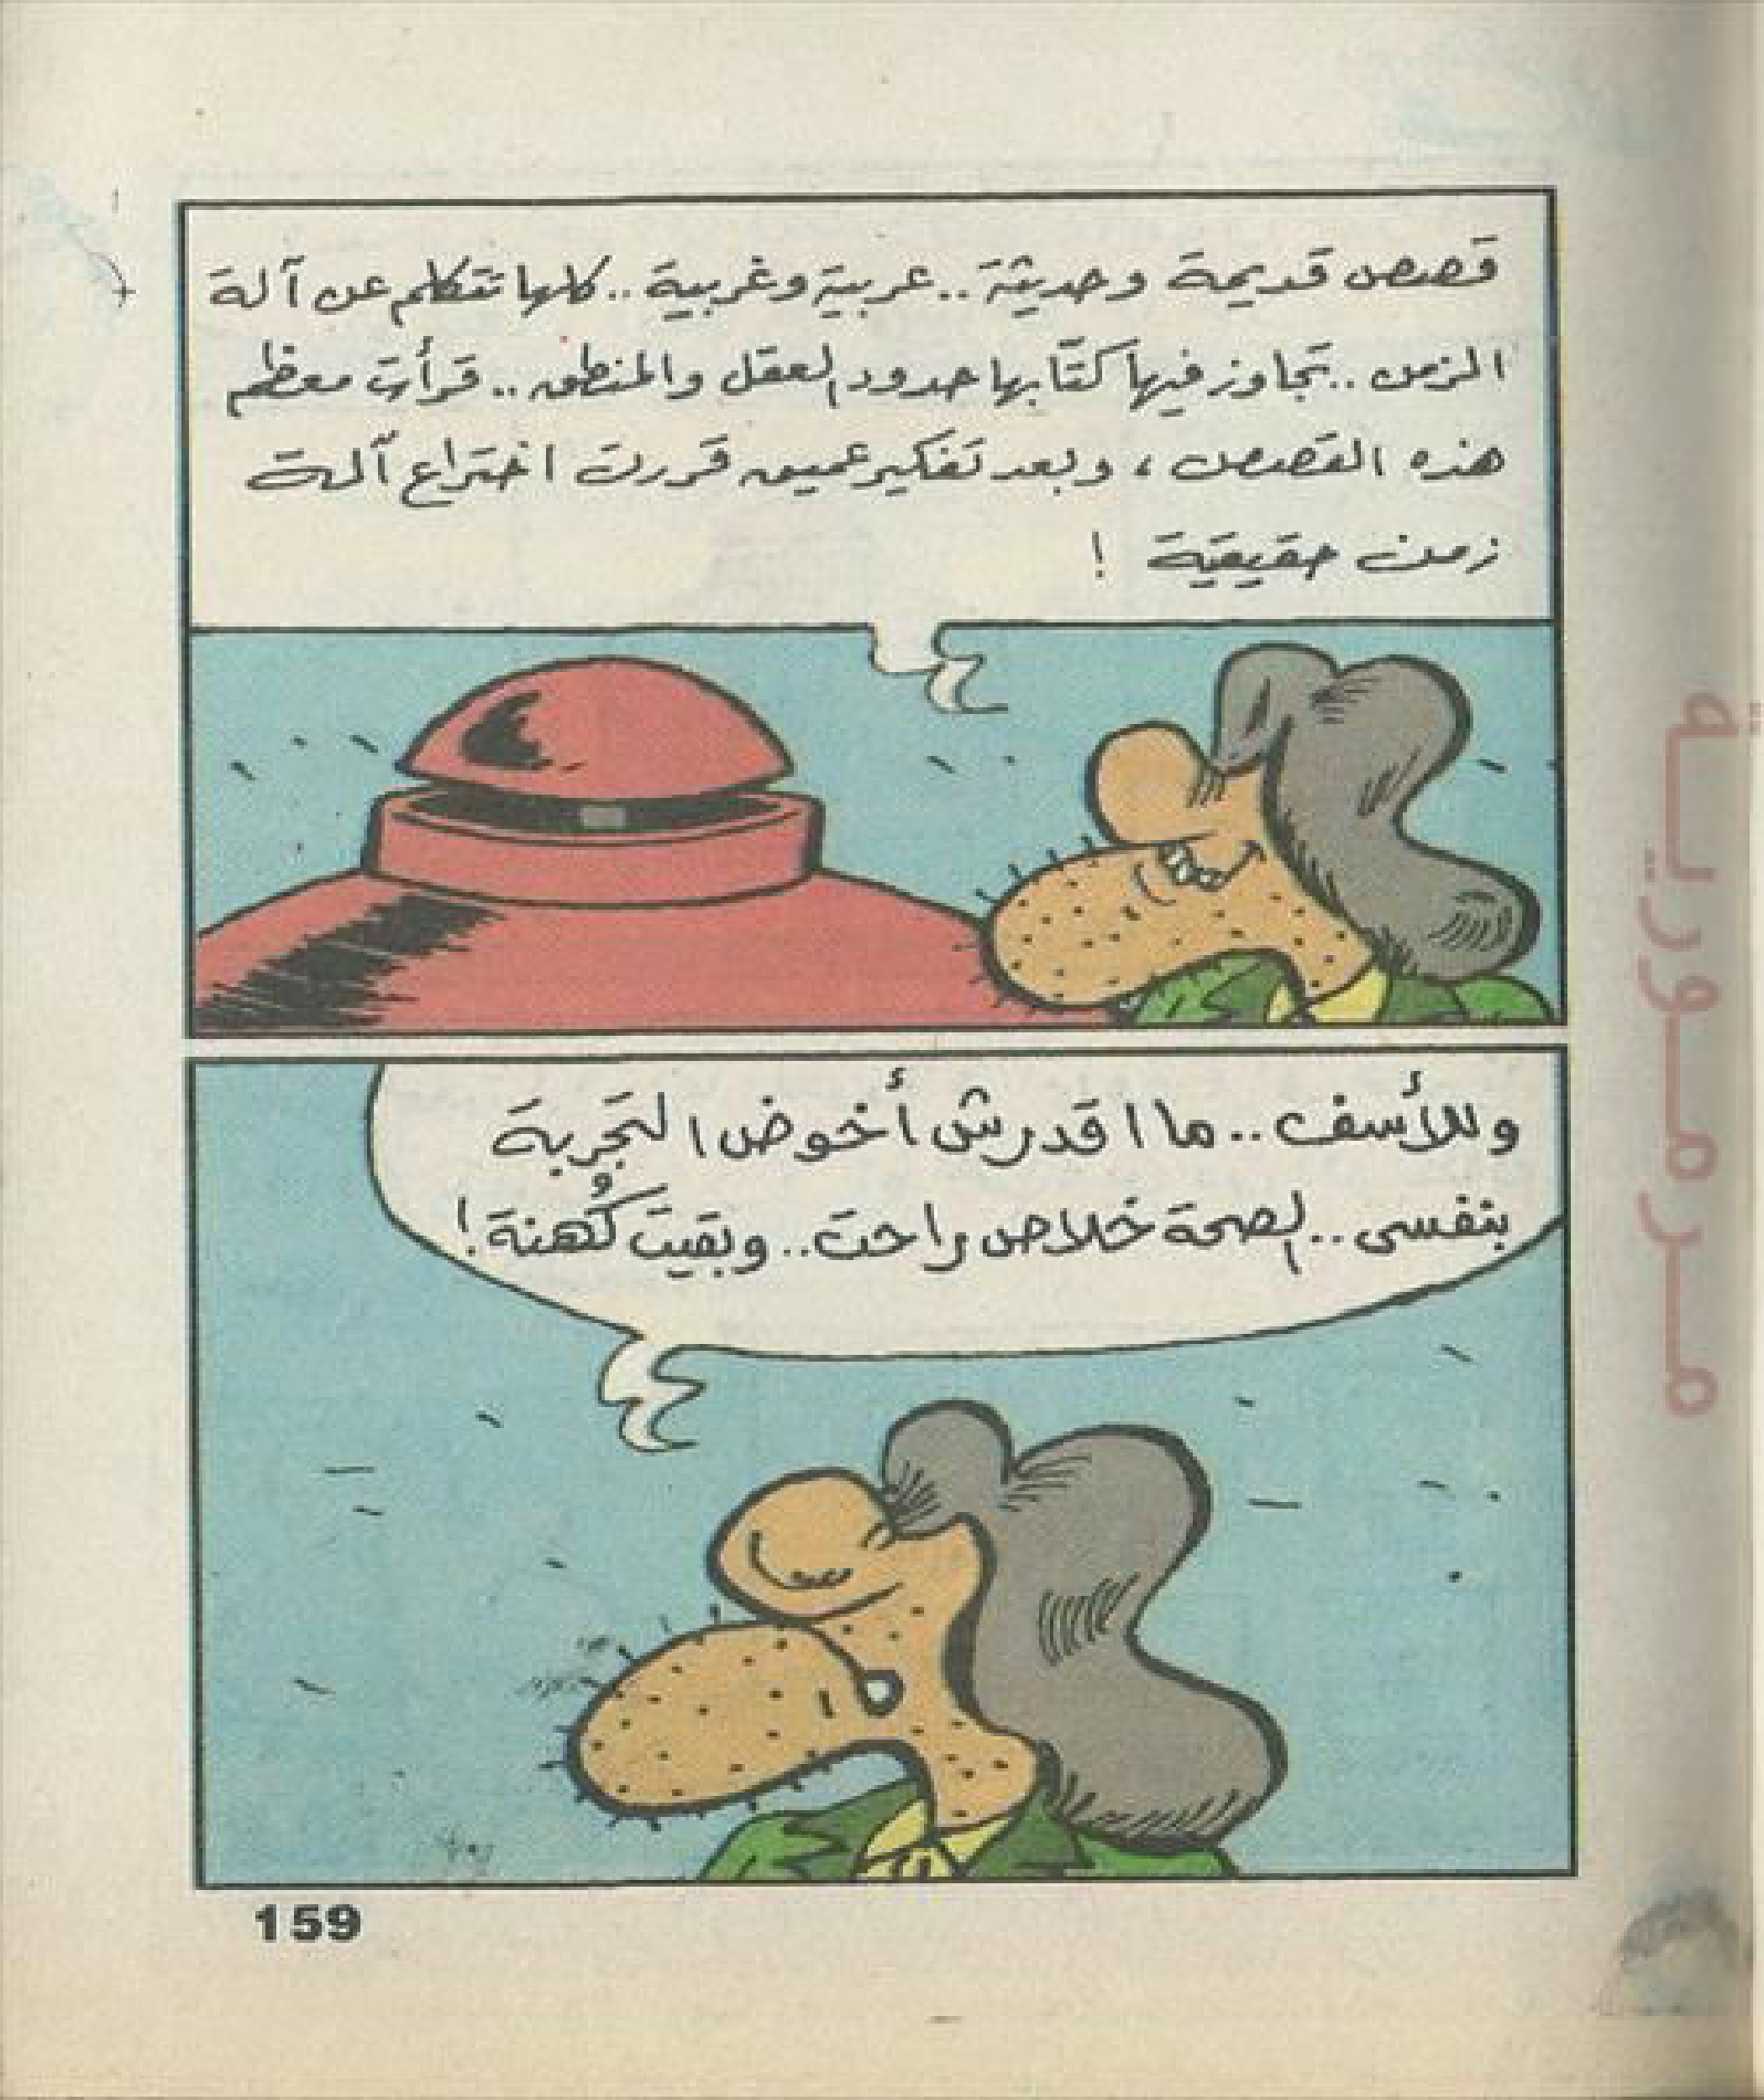 قصص قديمة وحديثة .. عربية وغربية .. كلها تتكلم عن آلة
الزمن .. تجاوز فيها كتّابها حدود العقل والمنطق .. قرأت معظم
هذه القصص ، وبعد تفكير عميق قررت اختراع آلة
زمن حقيقية !
وللأسف .. ما اقدرش أخوض التجربة
بنفسى .. الصحة خلاص راحت .. وبقيت كُهنة !
159
مرمورية